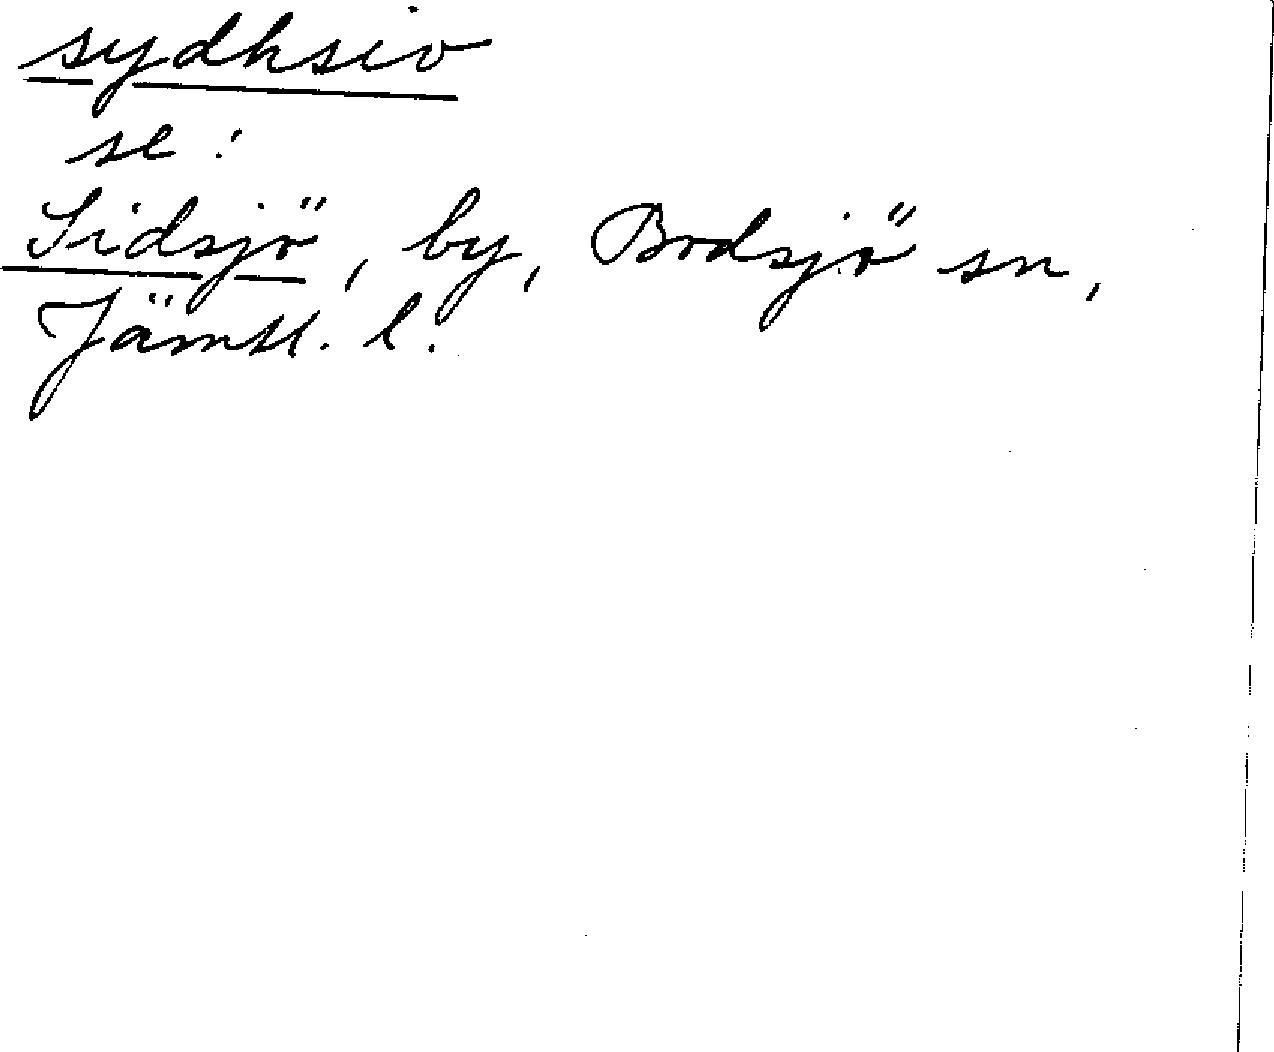 sydhsio
se:
Sidsjö, by, Bodsjö sn,
Jämtl. l.